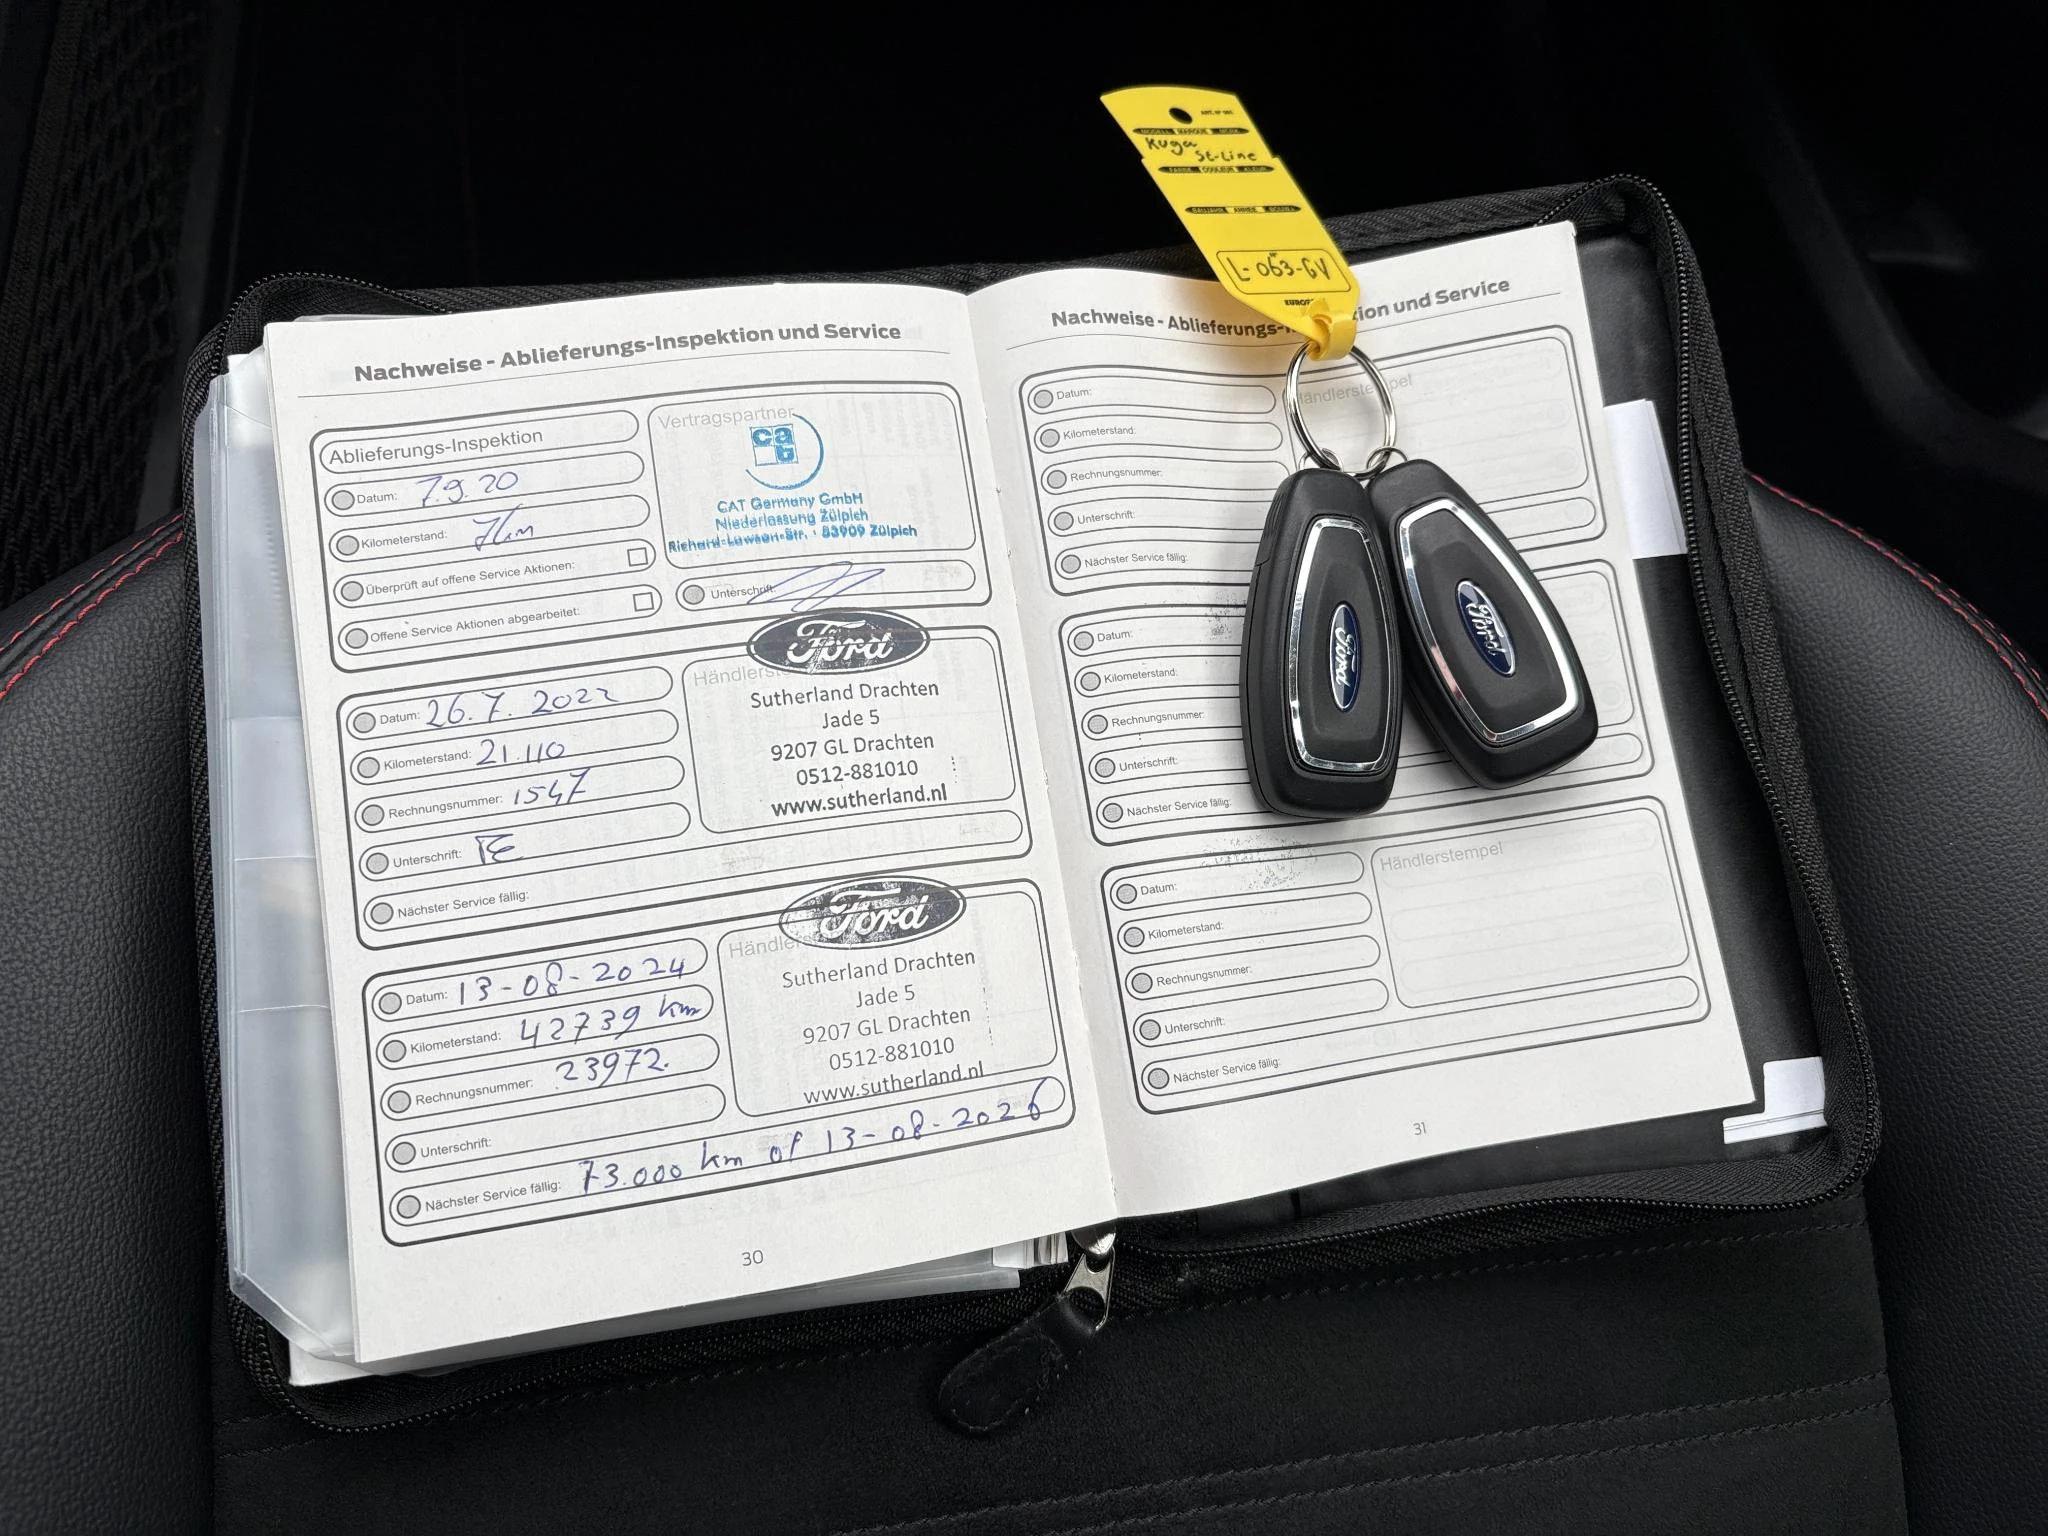 ART. Nº 991
MODELL MARQUE MERK
Kuga
St-Line
FARBE COULEUR KLEUR
BAUJAHR ANNEE
L-063-GV
Nachweise - Ablieferungs-Inspektion und Service
Ablieferungs-Inspektion
Datum: 7.9.20
Kilometerstand: 7km
Überprüft auf offene Service Aktionen:
Offene Service Aktionen abgearbeitet:
Vertragspartner
cat
CAT Germany GmbH
Niederlassung Zülpich
Richard-Lawson-Str. · 53909 Zülpich
Unterschrift:
Datum: 26.7.2022
Kilometerstand: 21.110
Rechnungsnummer: 1547
Unterschrift:
Nächster Service fällig:
Ford
Sutherland Drachten
Jade 5
9207 GL Drachten
0512-881010
www.sutherland.nl
Datum: 13-08-2024
Kilometerstand: 42739 km
Rechnungsnummer: 23972.
Unterschrift:
Nächster Service fällig: 73.000 km of 13-08-2026
Ford
Sutherland Drachten
Jade 5
9207 GL Drachten
0512-881010
www.sutherland.nl
30
Nachweise - Ablieferungs- und Service
Datum:
Kilometerstand:
Rechnungsnummer:
Unterschrift:
Nächster Service fällig:
Datum:
Kilometerstand:
Rechnungsnummer:
Unterschrift:
Nächster Service fällig:
Ford
Ford
Datum:
Kilometerstand:
Rechnungsnummer:
Unterschrift:
Nächster Service fällig:
Händlerstempel
31